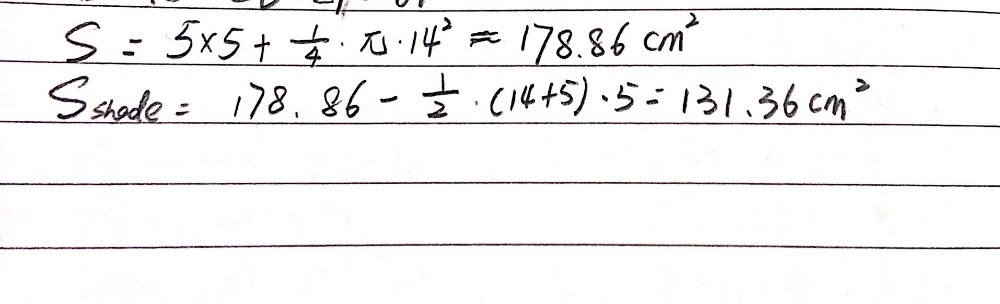 S = 5×5 + 1/4 · π · 14² ≈ 178.86 cm²
S shade = 178.86 - 1/2 · (14+5) · 5 = 131.36 cm²